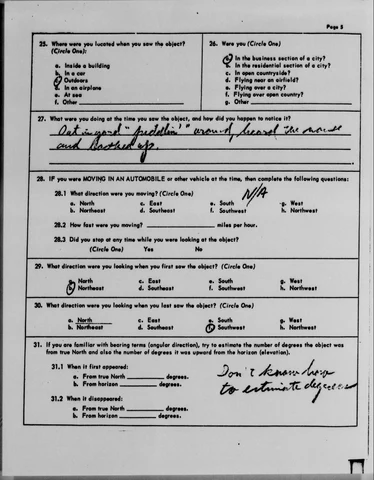 Page 5
25. Where were you located when you saw the object?
(Circle One):
a. Inside a building
b. In a car
c. Outdoors
d. In an airplane
e. At sea
f. Other
26. Were you (Circle One)
a. In the business section of a city?
b. In the residential section of a city?
c. In open countryside?
d. Flying near an airfield?
e. Flying over a city?
f. Flying over open country?
g. Other
27. What were you doing at the time you saw the object, and how did you happen to notice it?
Out in yard "piddlin'" around, heard the noise
and looked up.
28. IF you were MOVING IN AN AUTOMOBILE or other vehicle at the time, then complete the following questions:
N/A
28.1 What direction were you moving? (Circle One)
a. North c. East e. South g. West
b. Northeast d. Southeast f. Southwest h. Northwest
28.2 How fast were you moving? miles per hour.
28.3 Did you stop at any time while you were looking at the object?
(Circle One) Yes No
29. What direction were you looking when you first saw the object? (Circle One)
a. North c. East e. South g. West
b. Northeast d. Southeast f. Southwest h. Northwest
30. What direction were you looking when you last saw the object? (Circle One)
a. North c. East e. South g. West
b. Northeast d. Southeast f. Southwest h. Northwest
31. If you are familiar with bearing terms (angular direction), try to estimate the number of degrees the object was
from true North and also the number of degrees it was upward from the horizon (elevation).
31.1 When it first appeared:
a. From true North degrees.
b. From horizon degrees.
31.2 When it disappeared:
a. From true North degrees.
b. From horizon degrees.
Don't know how
to estimate degrees